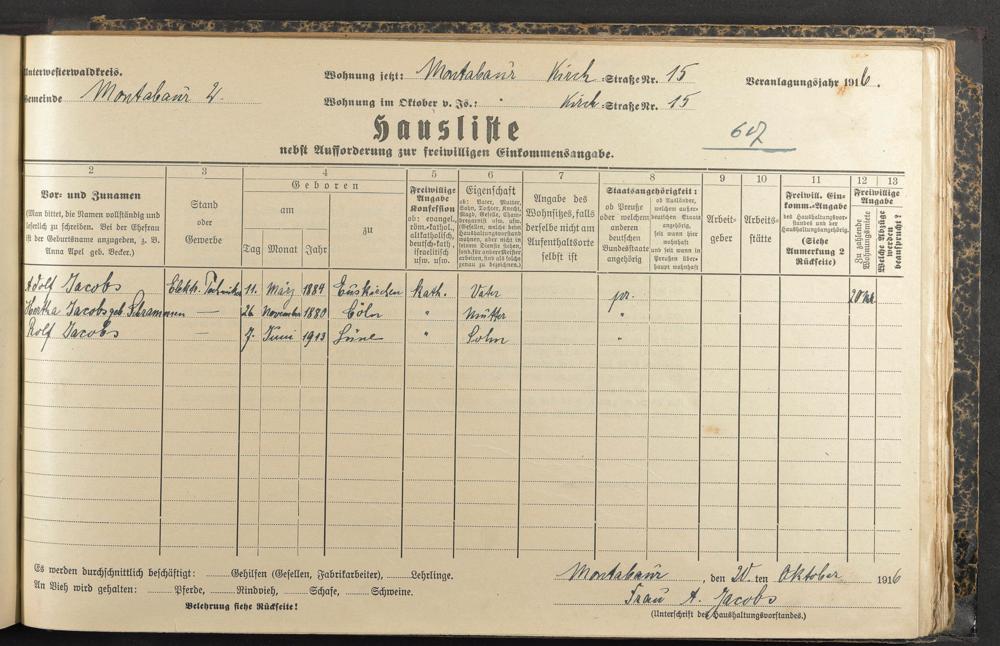 Unterwesterwaldkreis.
Wohnung jetzt: Montabaur Kirch-Straße Nr. 15
Veranlagungsjahr 1916.
Gemeinde Montabaur 2.
Wohnung im Oktober v. Js.: Kirch-Straße Nr. 15
Hausliste
nebst Aufforderung zur freiwilligen Einkommensangabe.
2 3 4 5 6 7 8 9 10 11 12 13
Vor- und Zunamen
(Man bittet, die Namen vollständig und
leserlich zu schreiben. Bei der Ehefrau
ist der Geburtsname anzugeben, z. B.
Anna Apel geb. Becker.)
Stand
oder
Gewerbe
Geboren
am
Tag Monat Jahr
zu
Freiwillige
Angabe
Konfession
ob: evangel.,
röm.-kathol.,
altkatholisch,
deutsch-kath.,
israelitisch
usw. usw.
Eigenschaft
ob: Vater, Mutter,
Sohn, Tochter, Knecht,
Magd, Geselle,
Angabe des
Wohnsitzes, falls
derselbe nicht am
Aufenthaltsorte
selbst ist
Staatsangehörigkeit:
ob Preuße
oder welchem
anderen
deutschen
Bundesstaate
angehörig
ob Ausländer,
welchem außer-
deutschen Staat
angehörig,
seit wann hier
wohnhaft
und seit wann in
Preußen über-
haupt wohnhaft
Arbeit-
geber
Arbeits-
stätte
Freiwill. Ein-
komm.-Angabe
des Haushaltungsvor-
standes und der
Haushaltungsangehörig.
(Siehe
Anmerkung 2
Rückseite)
Freiwillige
Angabe
Zu zahlende
Wohnungsmiete
Welche Abzüge
werden
beansprucht?
Adolf Jacobs Elektr. Techniker 11. März 1884 Euskirchen kath. Vater pr. 20 Mk
Jacobs geb. Schrammen — 26 November 1880 Cöln " Mutter "
Rolf Jacobs — 7. Juni 1913 " Sohn "
Es werden durchschnittlich beschäftigt: Gehilfen (Gesellen, Fabrikarbeiter), Lehrlinge.
An Vieh wird gehalten: Pferde, Rindvieh, Schafe, Schweine.
Belehrung siehe Rückseite!
Montabaur, den 20.ten Oktober 1916
Frau A. Jacobs
(Unterschrift des Haushaltungsvorstandes.)